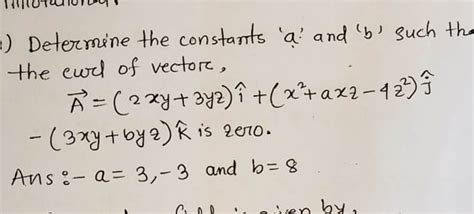 :) Determine the constants 'a' and 'b' such tha
the curl of vector,
A⃗ = (2xy+3yz)î + (x²+axz-4z²)ĵ
- (3xy+byz)k̂ is zero.
Ans :- a = 3, -3 and b = 8
is given by,